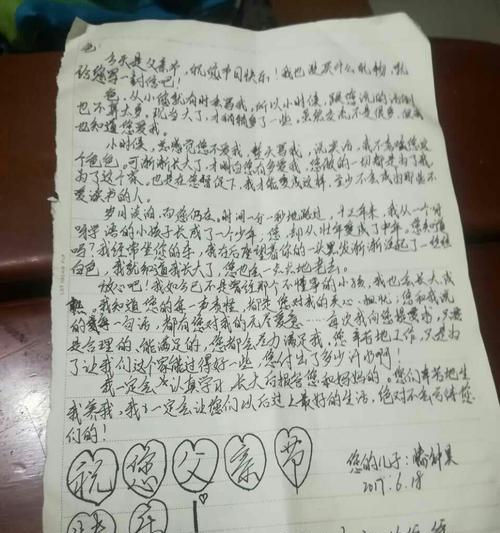 爸：
今天是父亲节，祝您节日快乐！我也没买什么礼物，就
给您写一封信吧！
爸，从小您就有时去骂我，所以小时侯，跟您说的话倒
也不算太多。现当大了，才稍稍多了一些。虽然交流不是很多，但我
也知道您爱我。
小时侯，总感觉您不爱我，整天骂我，说实话，我不喜欢您
个爸爸，可渐渐长大了，才明白您有多爱我。您做的一切都是为了我
为了这个家。也是在您督促下，我才能变成这样，至少不会成为那些不
爱读书的人。
岁月淡泊，而您仍在。时间一分一秒地跑过，十三年来，我从一个呀
呀学语的小孩子长成了一个少年，您，却从壮年变成了中年。您知道
吗？我经常坐您的车，我在后座望着你的一头黑发渐渐泛起了丝丝
白色，我就知道我长大了，您也会一天天地老去。
放心吧！我如今已不是曾经那个不懂事的小孩，我也会长大成
熟。我知道您的每一声责怪，都是您对我的关心、担忧，您和我说
的每一句话，都有您对我的无尽爱意……每次我向您提要求，只要
是合理的，能满足的，您都会尽力满足我。您辛苦地工作，只是为
了让我们这个家能过得好一些，您付出了多少汗水啊！
我一定会认真学习，长大后报答您和妈妈的。您们辛苦地生
我养我，我一定会让您们以后过上最好的生活，绝对不会亏待您
们的！
祝您父亲节
快乐
您的儿子：
2017.6.18